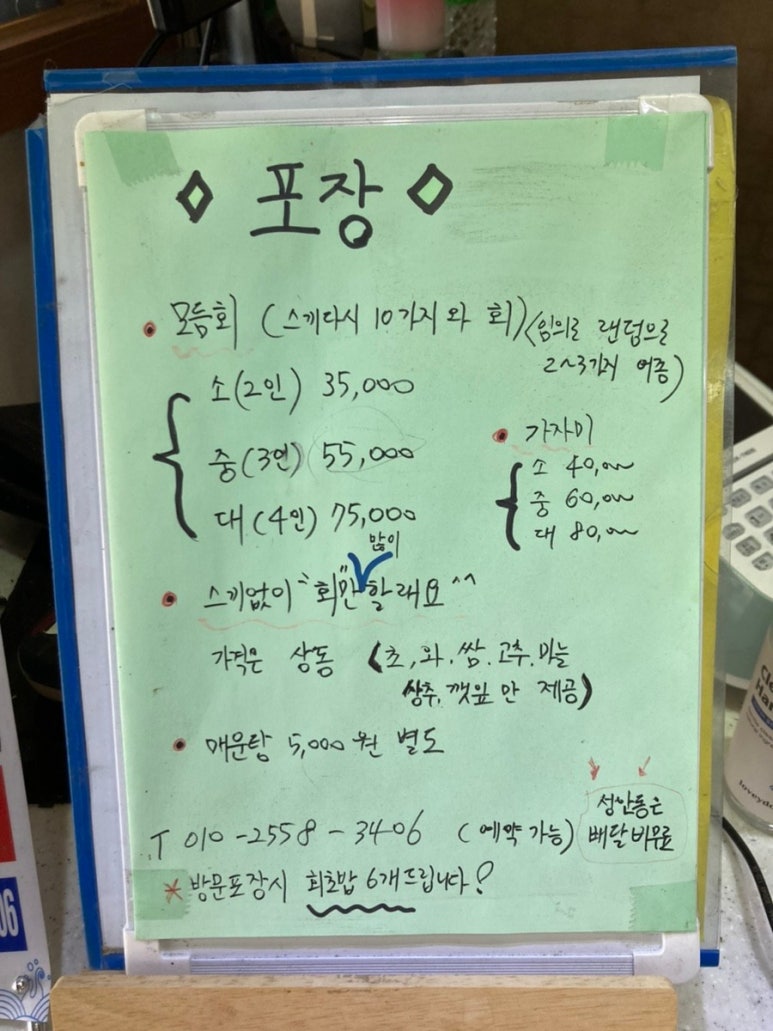 ◇ 포장 ◇
• 모듬회 (스끼다시 10가지와 회)
<임의로 랜덤으로
2~3가지 어종)
소(2인) 35,000
중(3인) 55,000
대(4인) 75,000
• 가자미
소 40,000
중 60,000
대 80,000
많이
• 스끼없이 "회"만 할래요 ^^
가격은 상동 (초, 와, 쌈, 고추, 마늘
상추, 깻잎 만 제공)
• 매운탕 5,000원 별도
T 010-2558-3406 (예약 가능)
성안동은
배달비무료
* 방문포장시 회초밥 6개드립니다!
06
loveyd